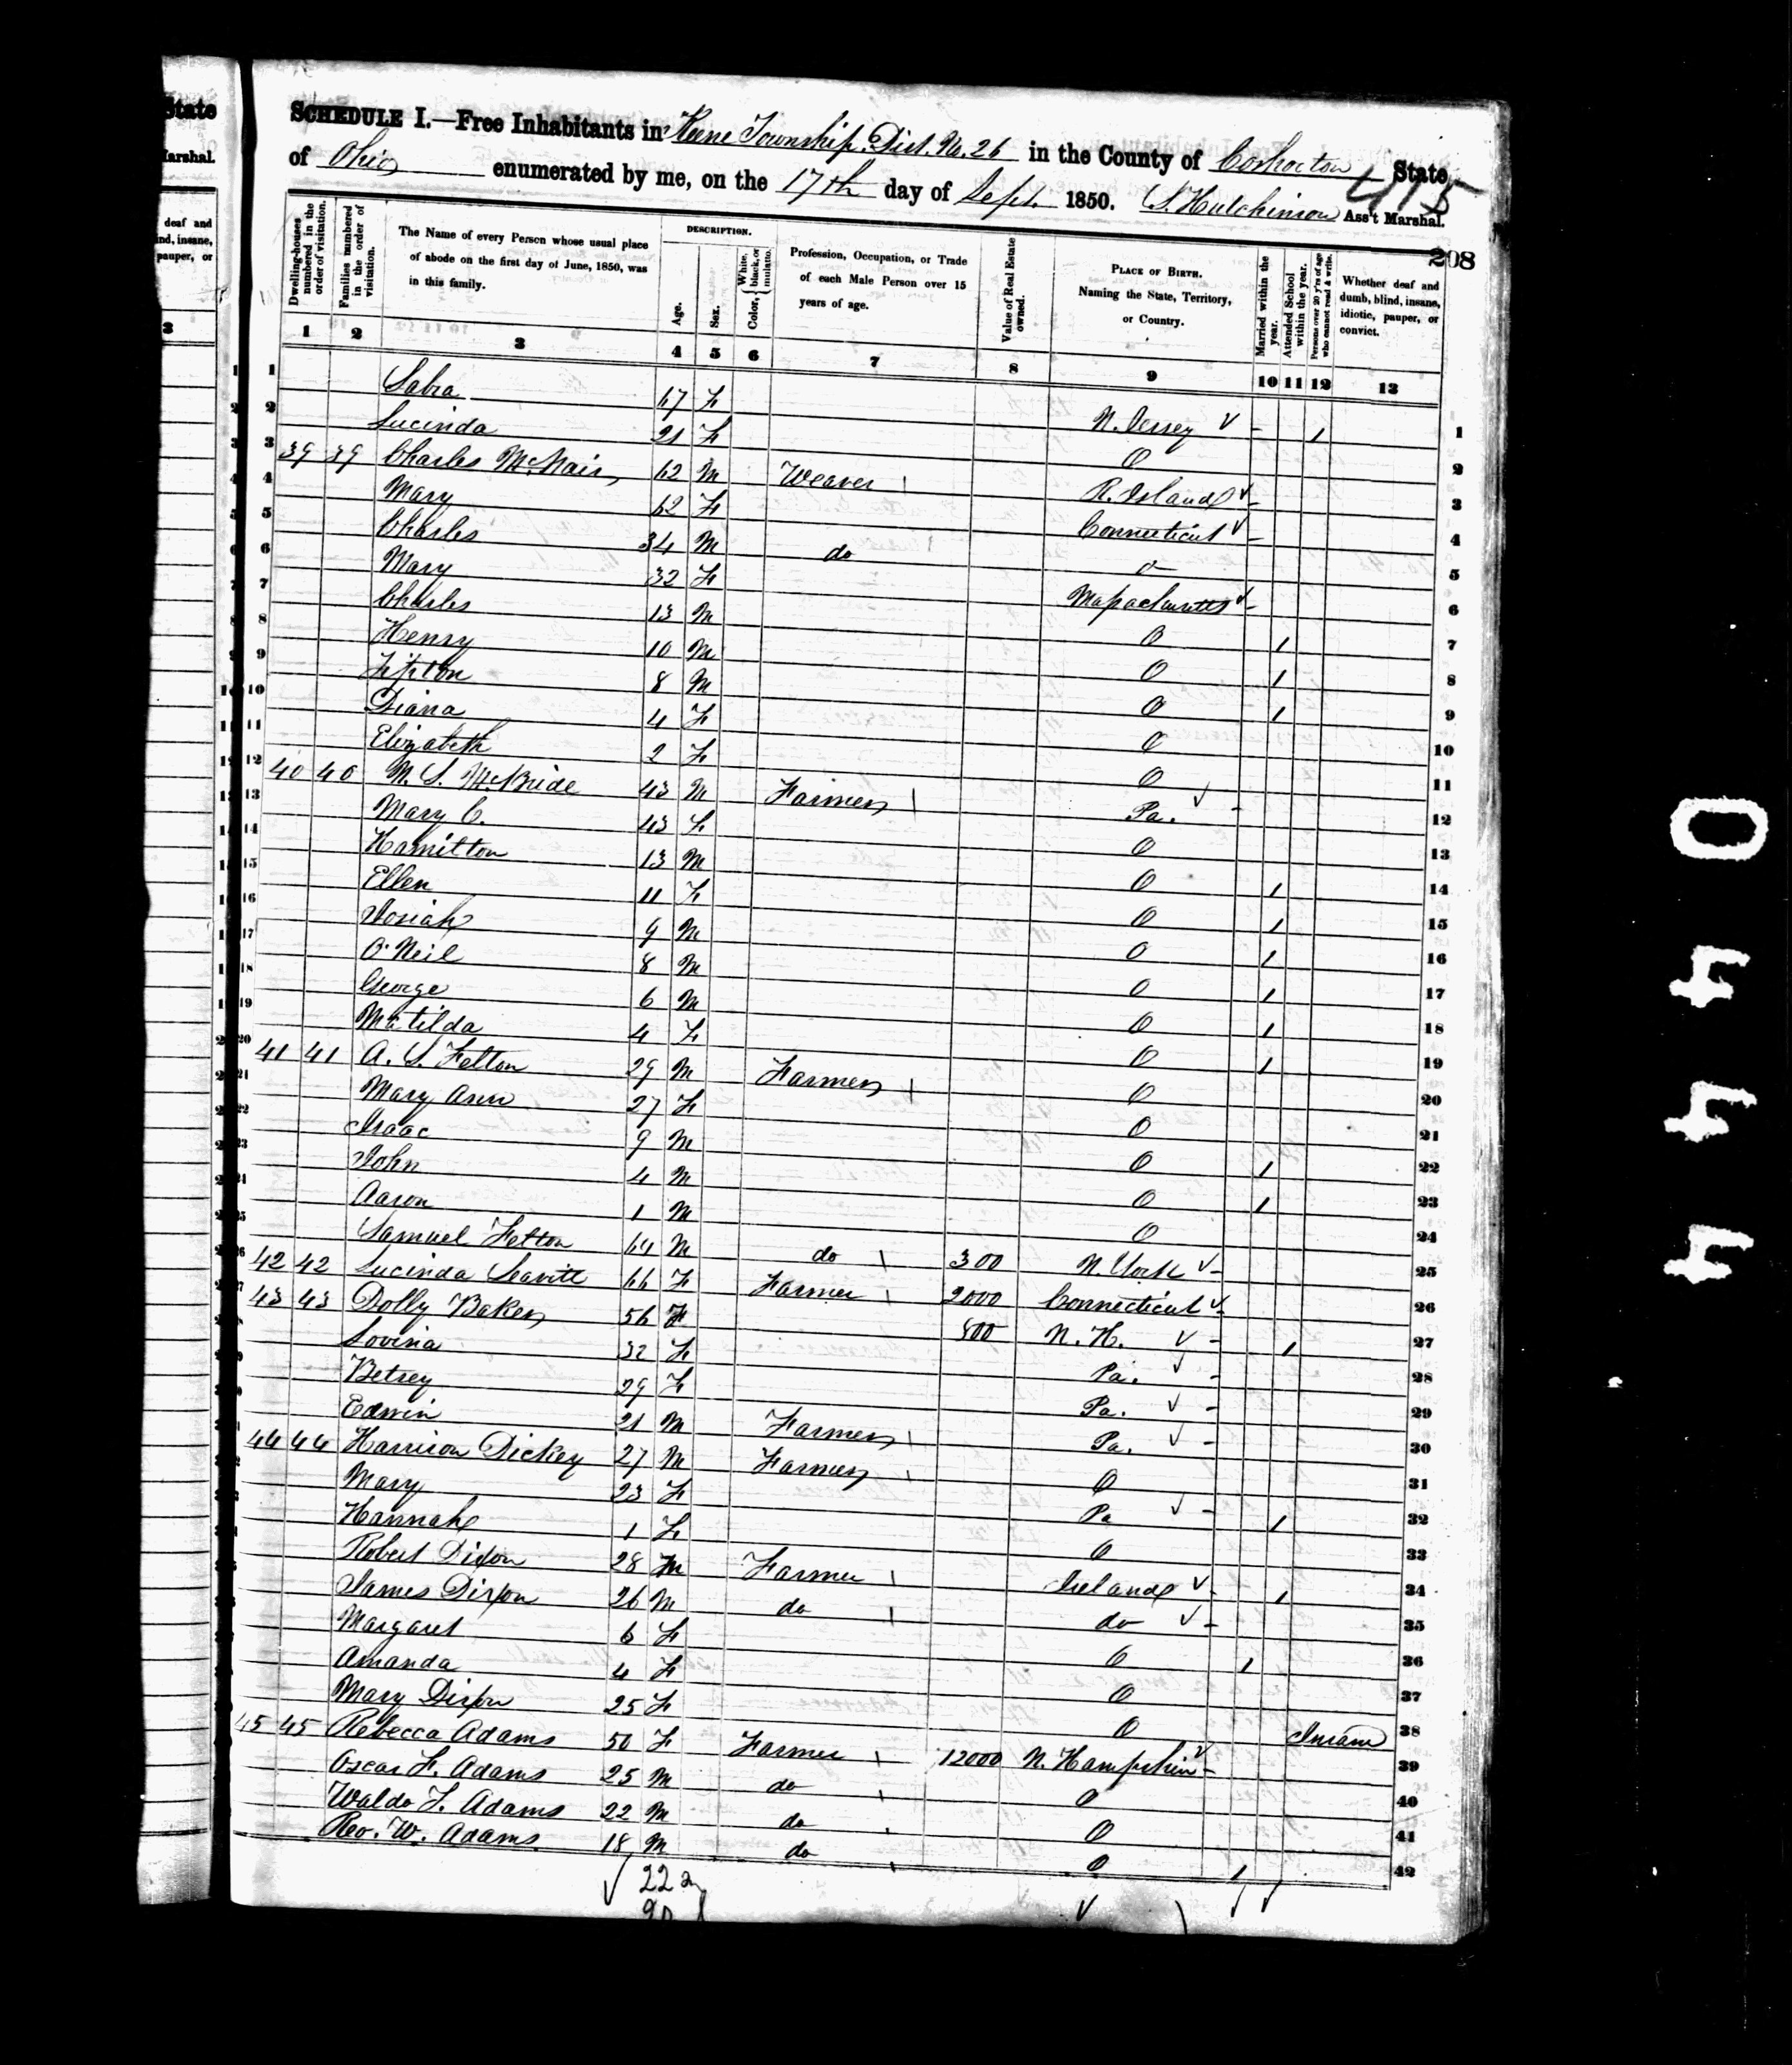 State
Marshal.
deaf and
ind, insane,
pauper, or
3
SCHEDULE I.—Free Inhabitants in Keene Township. Dist. No. 26 in the County of Coshocton State
of Ohio enumerated by me, on the 17th day of Sept. 1850. S. Hutchinson Ass't Marshal.
415
208
Dwelling-houses numbered in the order of visitation.
Families numbered in the order of visitation.
The Name of every Person whose usual place of abode on the first day of June, 1850, was in this family.
DESCRIPTION.
Age.
Sex.
Color, { White, black, or mulatto.
Profession, Occupation, or Trade of each Male Person over 15 years of age.
Value of Real Estate owned.
PLACE OF BIRTH. Naming the State, Territory, or Country.
Married within the year.
Attended School within the year.
Persons over 20 y'rs of age who cannot read & write.
Whether deaf and dumb, blind, insane, idiotic, pauper, or convict.
1 2 3 4 5 6 7 8 9 10 11 12 13
1 Sabra 67 F N. Jersey ✓ - 1 1
2 Lucinda 21 F O 2
3 39 39 Charles McNair 62 M Weaver R. Island ✓ - 3
4 Mary 62 F Connecticut ✓ - 4
5 Charles 34 M do o 5
6 Mary 32 F Massachusetts ✓ - 6
7 Charles 13 M O 1 7
8 Henry 10 M O 1 8
9 Tipton 8 M O 1 9
10 Diana 4 F O 10
11 Elizabeth 2 F O 11
12 40 40 M. S. McBride 43 M Farmer Pa. ✓ - 12
13 Mary C. 43 F O 13
14 Hamilton 13 M O 1 14
15 Ellen 11 F O 1 15
16 Josiah 9 M O 1 16
17 O'Neil 8 M O 1 17
18 George 6 M O 1 18
19 Matilda 4 F O 1 19
20 41 41 A. S. Felton 29 M Farmer O 20
21 Mary Ann 27 F O 21
22 Isaac 9 M O 1 22
23 John 4 M O 1 23
24 Aaron 1 M O 24
25 Samuel Felton 64 M do 300 N. York ✓ - 25
26 42 42 Lucinda Leavitt 66 F Farmer 2000 Connecticut ✓ - 26
43 43 Dolly Baker 56 F 800 N. H. ✓ - 1 27
Lovina 32 F Pa. ✓ - 28
Betsey 29 F Pa. ✓ - 29
Edwin 21 M Farmer Pa. ✓ - 30
44 44 Harrison Dickey 27 M Farmer O 31
Mary 23 F Pa ✓ - 1 32
Hannah 1 F O 33
Robert Dixon 28 M Farmer Ireland ✓ - 1 34
James Dixon 26 M do do ✓ - 35
Margaret 6 F O 1 36
Amanda 4 F O 37
Mary Dixon 25 F O Insane 38
45 45 Rebecca Adams 50 F Farmer 12000 N. Hampshire ✓ - 39
Oscar F. Adams 25 M do O 40
Waldo F. Adams 22 M do O 41
Reo. W. Adams 18 M do O 1 42
✓ 22 ✓ ✓ ✓
20
0444